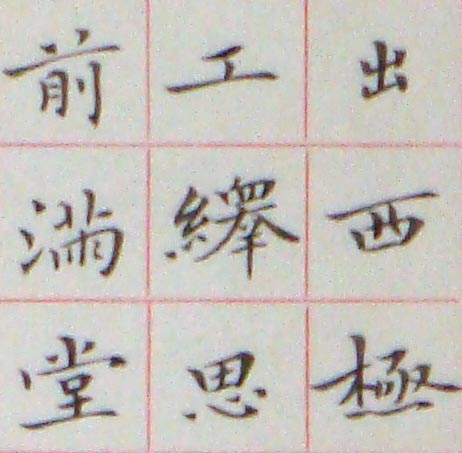 出西極
工繹思
前滿堂